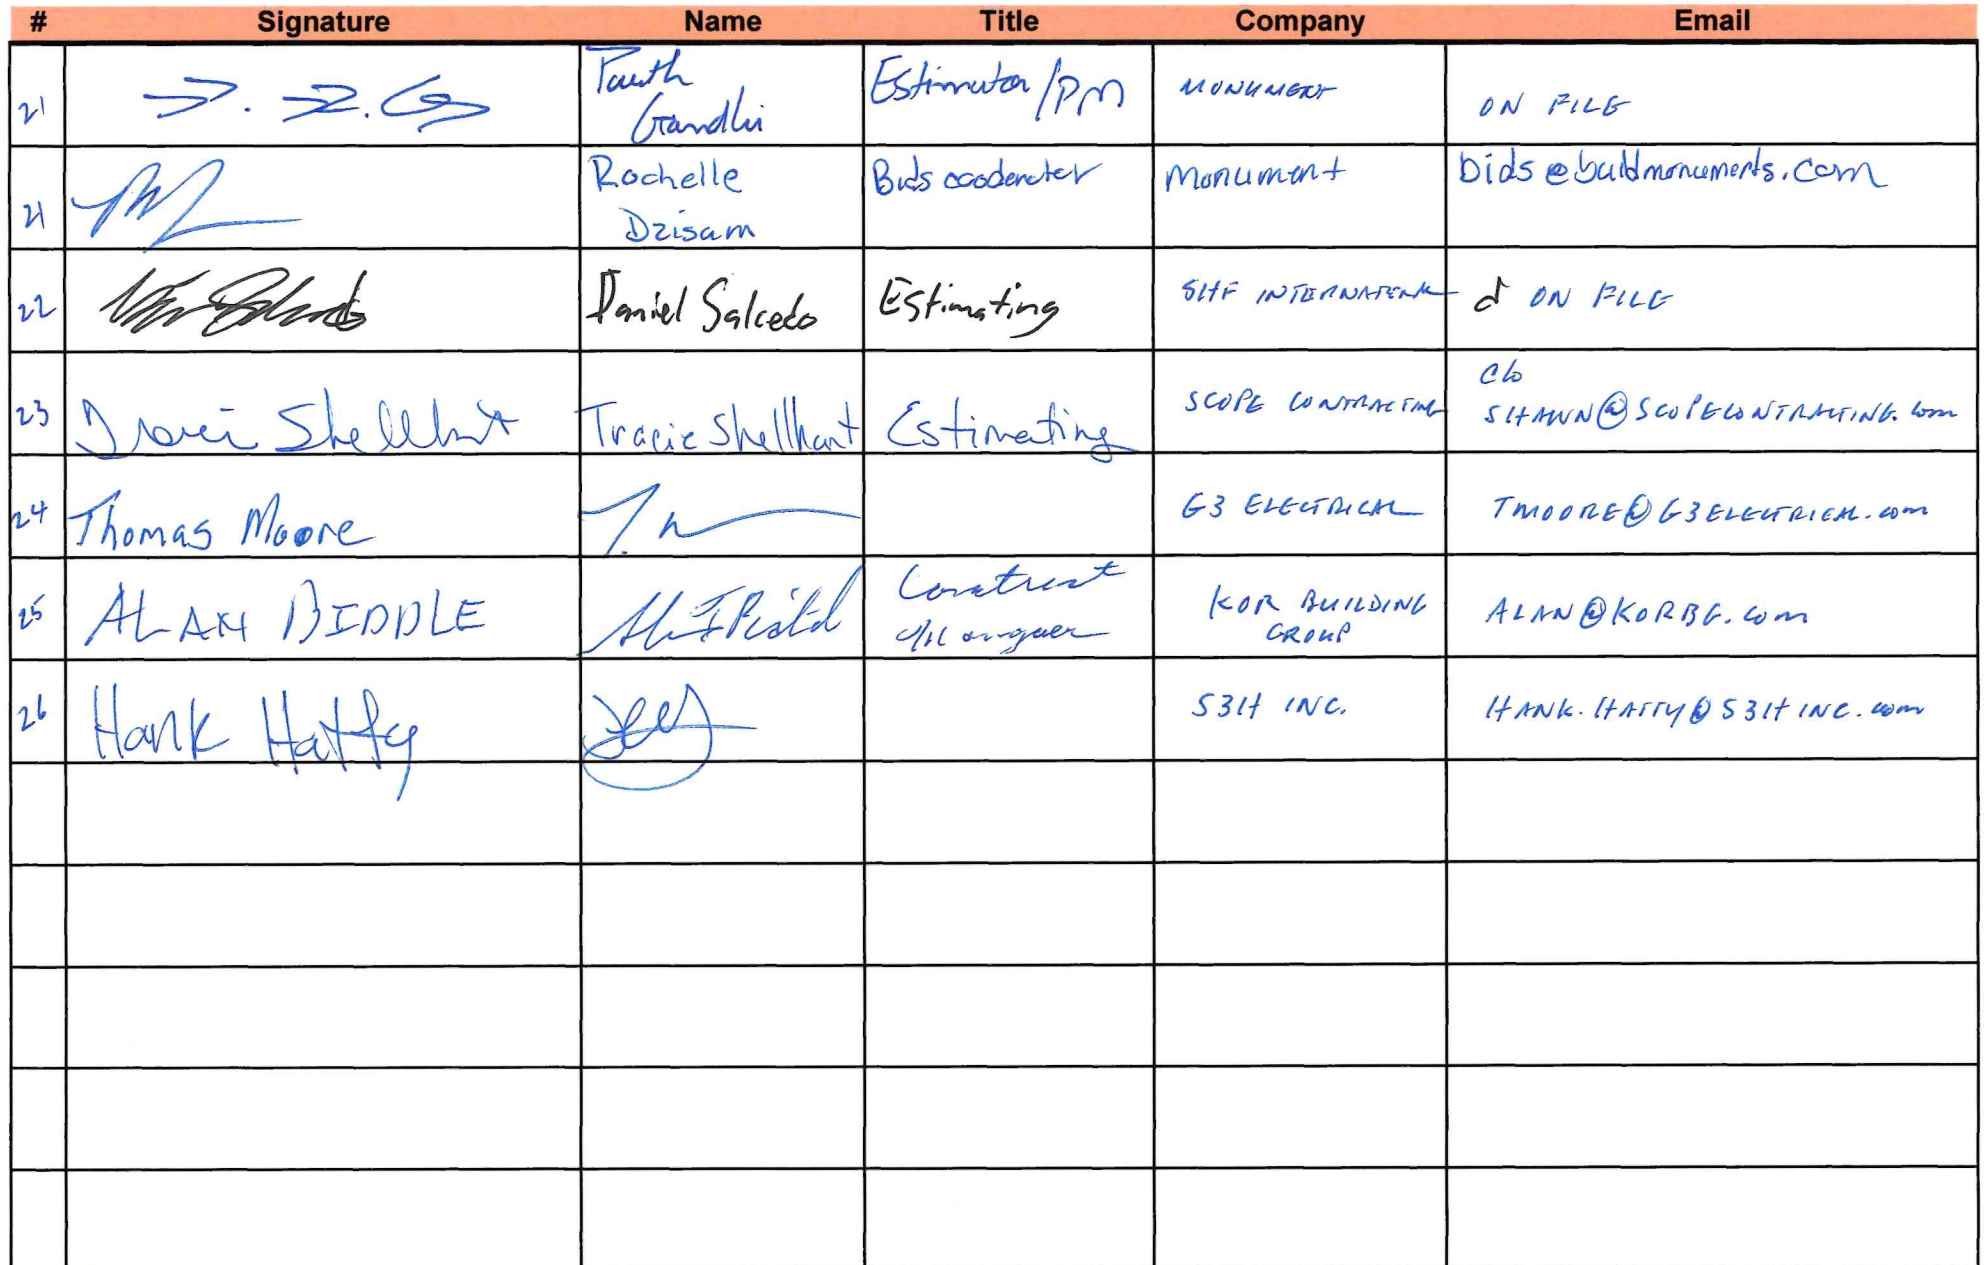 # Signature Name Title Company Email
21 Gandhi Estimator/PM MONUMENT ON FILE
21 Rochelle Dzisam Bids Monument bids@buildmonuments.com
22 Daniel Salcedo Estimating SHF INTERNATIONAL ON FILE
23 Tracie Shellhart Estimating SCOPE CONTRACTING c/o SHAWN@SCOPECONTRACTING.com
24 Thomas Moore G3 ELECTRICAL TMOORE@G3ELECTRICAL.com
25 ALAN BIDDLE Contract Manager KOR BUILDING GROUP ALAN@KORBG.com
26 Hank Hatty S3H INC. HANK.HATTY@S3HINC.com